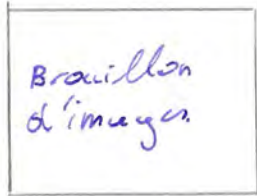 Brouillon
d'images